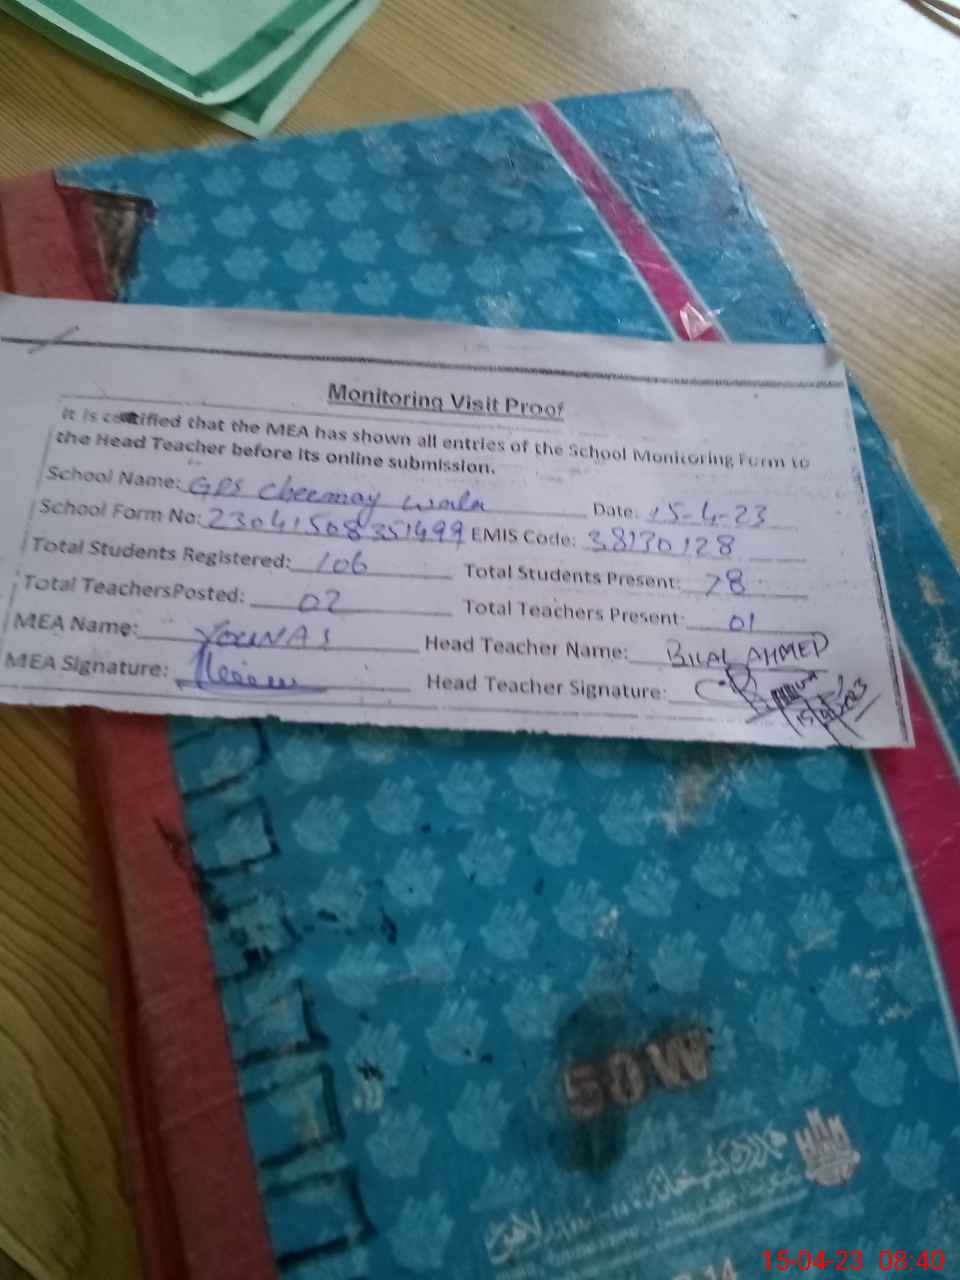 Monitoring Visit Proof
It is certified that the MEA has shown all entries of the School Monitoring Form to
the Head Teacher before its online submission.
School Name: GPS cheemay wala Date: 15-4-23
School Form No: 23041508351499 EMIS Code: 38130128
Total Students Registered: 106 Total Students Present: 78
Total TeachersPosted: 02 Total Teachers Present: 01
MEA Name: YOUNAS Head Teacher Name: BILAL AHMED
MEA Signature: Head Teacher Signature:
15/04/2023
50W
15-04-23 08:40